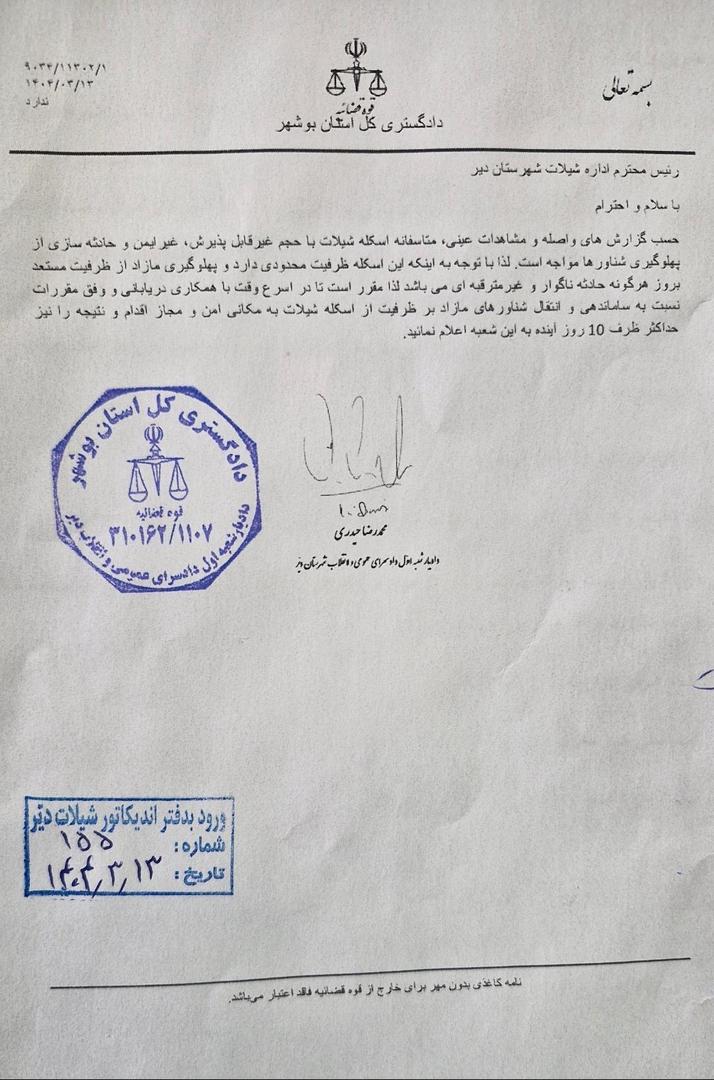 بسمه تعالی
قوه قضائیه
دادگستری کل استان بوشهر
۹۰۳۴/۱۱۳۰۲/۱
۱۴۰۴/۰۳/۱۳
ندارد
رئیس محترم اداره شیلات شهرستان دیر
با سلام و احترام
حسب گزارش های واصله و مشاهدات عینی، متاسفانه اسکله شیلات با حجم غیرقابل پذیرش، غیرایمن و حادثه سازی از
پهلوگیری شناورها مواجه است. لذا با توجه به اینکه این اسکله ظرفیت محدودی دارد و پهلوگیری مازاد از ظرفیت مستعد
بروز هرگونه حادثه ناگوار و غیرمترقبه ای می باشد لذا مقرر است تا در اسرع وقت با همکاری دریابانی و وفق مقررات
نسبت به ساماندهی و انتقال شناورهای مازاد بر ظرفیت از اسکله شیلات به مکانی امن و مجاز اقدام و نتیجه را نیز
حداکثر ظرف 10 روز آینده به این شعبه اعلام نمائید.
دادگستری کل استان بوشهر
قوه قضائیه
۳۱۰۱۶۲/۱۱۰۷
دادیار شعبه اول دادسرای عمومی و انقلاب دیر
محمدرضا حیدری
دادیار شعبه اول دادسرای عمومی و انقلاب شهرستان دیر
ورود بدفتر اندیکاتور شیلات دیّر
شماره: ۱۵۵
تاریخ: ۱۴۰۴٫۳٫۱۳
نامه کاغذی بدون مهر برای خارج از قوه قضائیه فاقد اعتبار می‌باشد.